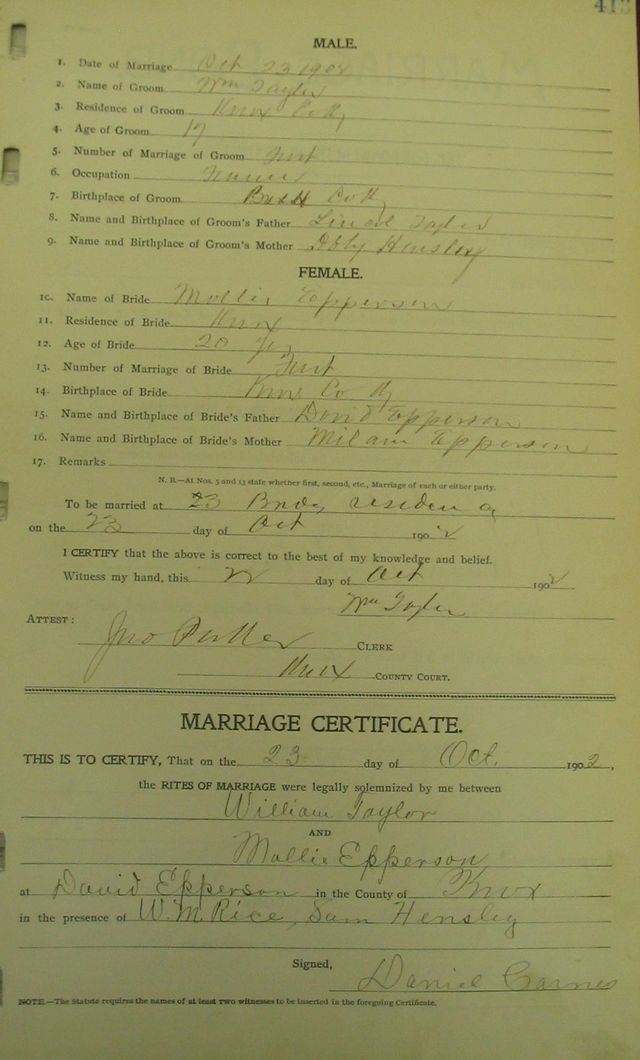 413
MALE.
1. Date of Marriage Oct 23 1902
2. Name of Groom Wm Taylor
3. Residence of Groom Knox Co Ky
4. Age of Groom 19
5. Number of Marriage of Groom First
6. Occupation Farmer
7. Birthplace of Groom Co Ky
8. Name and Birthplace of Groom's Father Taylor
9. Name and Birthplace of Groom's Mother Hensley
FEMALE.
10. Name of Bride Mollie Epperson
11. Residence of Bride Knox
12. Age of Bride 20 yrs
13. Number of Marriage of Bride First
14. Birthplace of Bride Knox Co Ky
15. Name and Birthplace of Bride's Father David Epperson
16. Name and Birthplace of Bride's Mother Milam Epperson
17. Remarks
N. B.—At Nos. 5 and 13 state whether first, second, etc., Marriage of each or either party.
To be married at 23 Brides residence
on the 23 day of Oct 1902
I CERTIFY that the above is correct to the best of my knowledge and belief.
Witness my hand, this 22 day of Oct 1902
Wm Taylor
ATTEST:
Jno Parker CLERK
Knox COUNTY COURT.
MARRIAGE CERTIFICATE.
THIS IS TO CERTIFY, That on the 23 day of Oct. 1902,
the RITES OF MARRIAGE were legally solemnized by me between
William Taylor
AND
Mollie Epperson
at David Epperson in the County of Knox
in the presence of W.M. Rice, Sam Hensley
Signed,
Daniel Carnes
NOTE.—The Statute requires the names of at least two witnesses to be inserted in the foregoing Certificate.